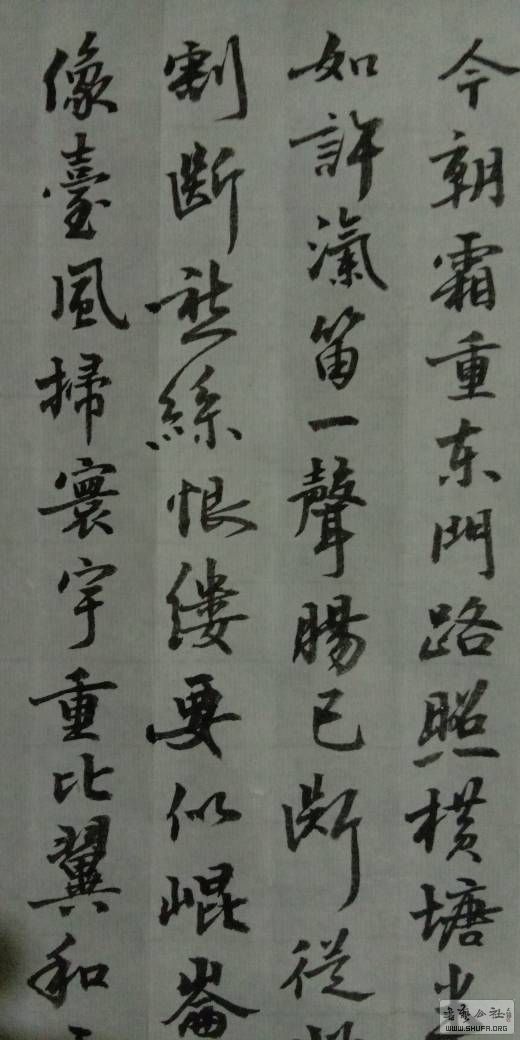 今朝霜重东門路照橫塘半
如許滊笛一聲腸已断從
割断愁絲恨缕要似崐崙
像臺風掃寰宇重比翼和
WWW.SHUFA.ORG